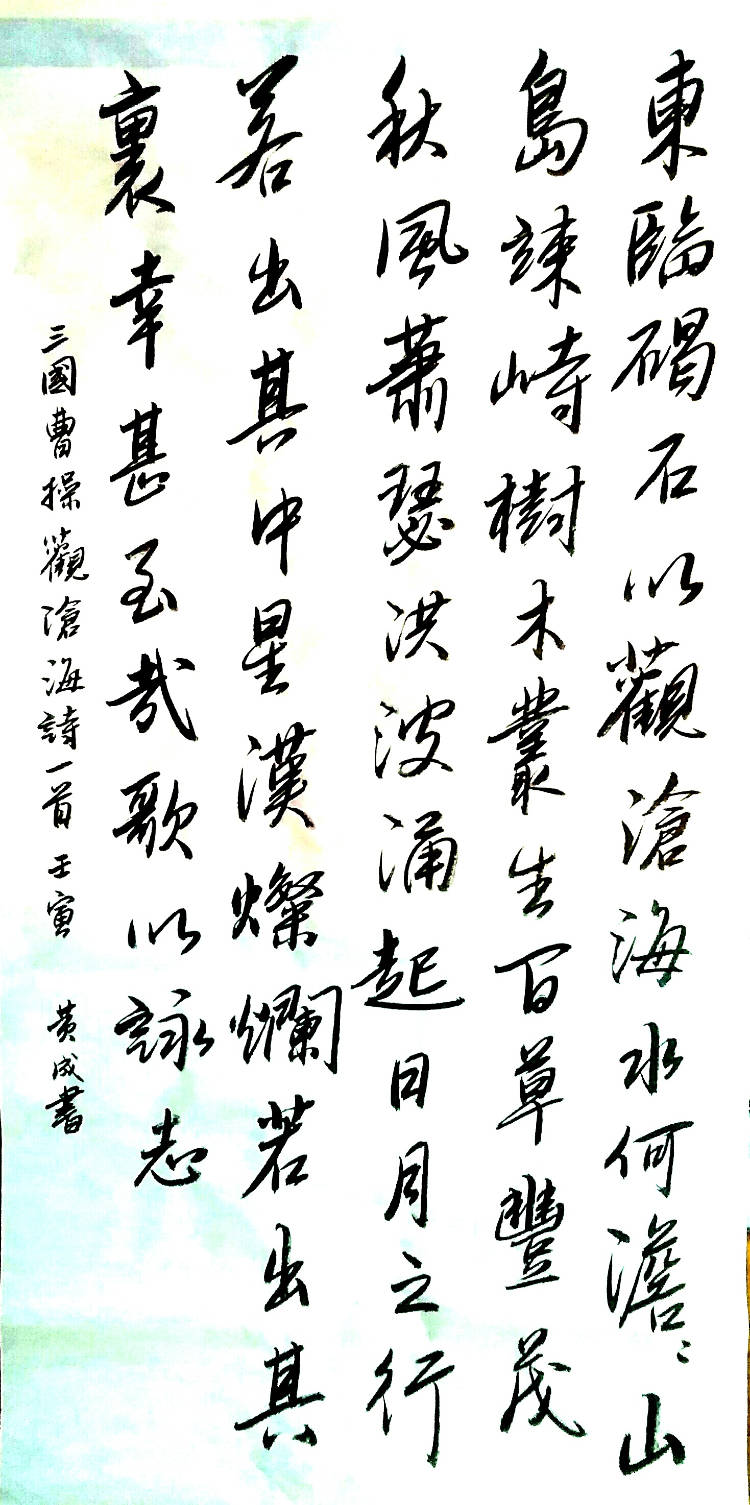 東臨碣石以觀滄海水何澹〻山
島竦峙樹木叢生百草豐茂
秋風蕭瑟洪波涌起日月之行
若出其中星漢燦爛若出其
裏幸甚至哉歌以詠志
三國曹操觀滄海詩一首壬寅 黃成書